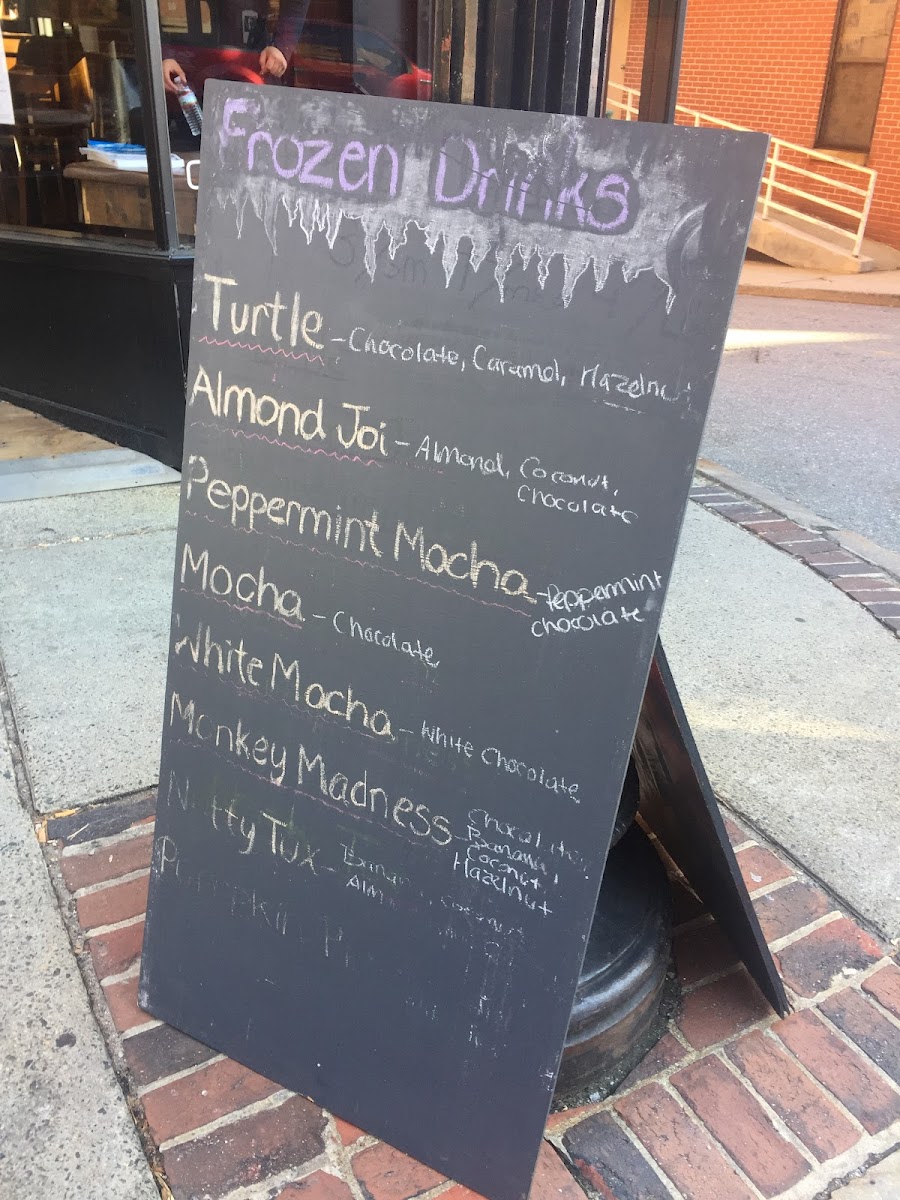 Frozen Drinks
Turtle - Chocolate, Caramel, Hazelnut
Almond Joi - Almond, Coconut,
Chocolate
Peppermint Mocha - Peppermint
chocolate
Mocha - Chocolate
White Mocha - White Chocolate
Monkey Madness - Chocolate,
Banana,
Coconut,
Hazelnut
Tux -